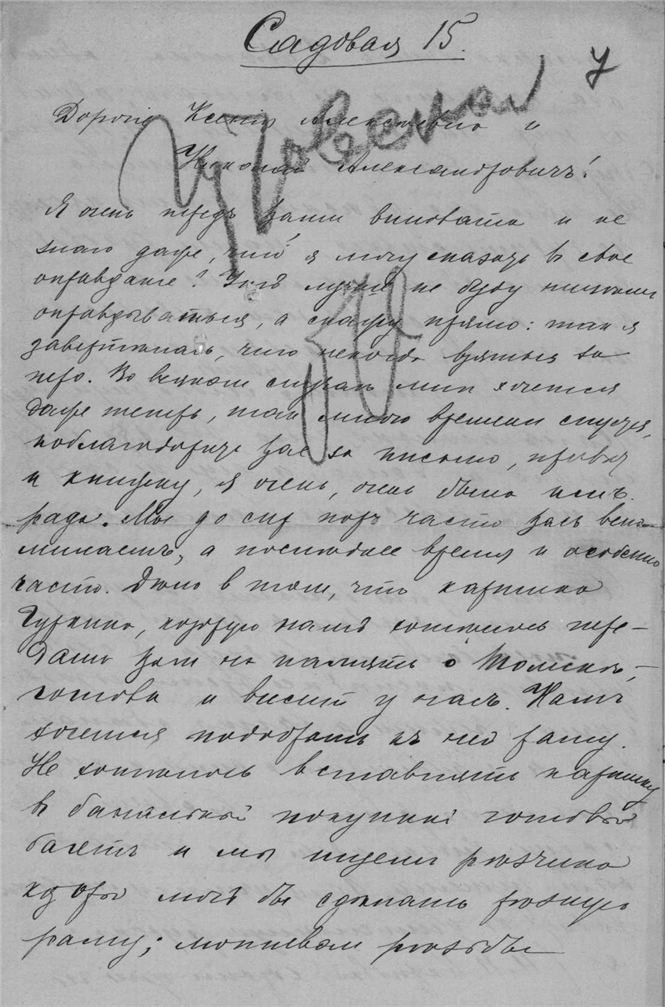 Садовая 15.
7
Дорогіе Ксенія Алексѣевна и
Николай Александровичъ!
Я очень передъ вами виновата и не
знаю даже, что я могу сказать в свое
оправданіе? Ужъ лучше не буду ничѣмъ
оправдываться, а скажу прямо: так я
завертѣлась, что некогда взяться за
перо. Во всякомъ случаѣ мнѣ хочется
даже теперь, так много времени спустя,
поблагодарить вас за письмо, привѣт
и книжку, я очень, очень была имъ
рада. Мы до сих поръ часто васъ вспо-
минаемъ, а последнее время и особенно
часто. Дѣло в том, что картина
Гуркина, которую намъ хотѣлось пере-
дать вам на память о Томскѣ,
готова и виситъ у насъ. Намъ
хочется подобрать къ ней раму.
Не хотѣлось вставлять картину
в банальный покупной готовый
багетъ и мы ищемъ рѣзчика
который могъ бы сдѣлать рѣзную
раму; мотивом рѣзьбы